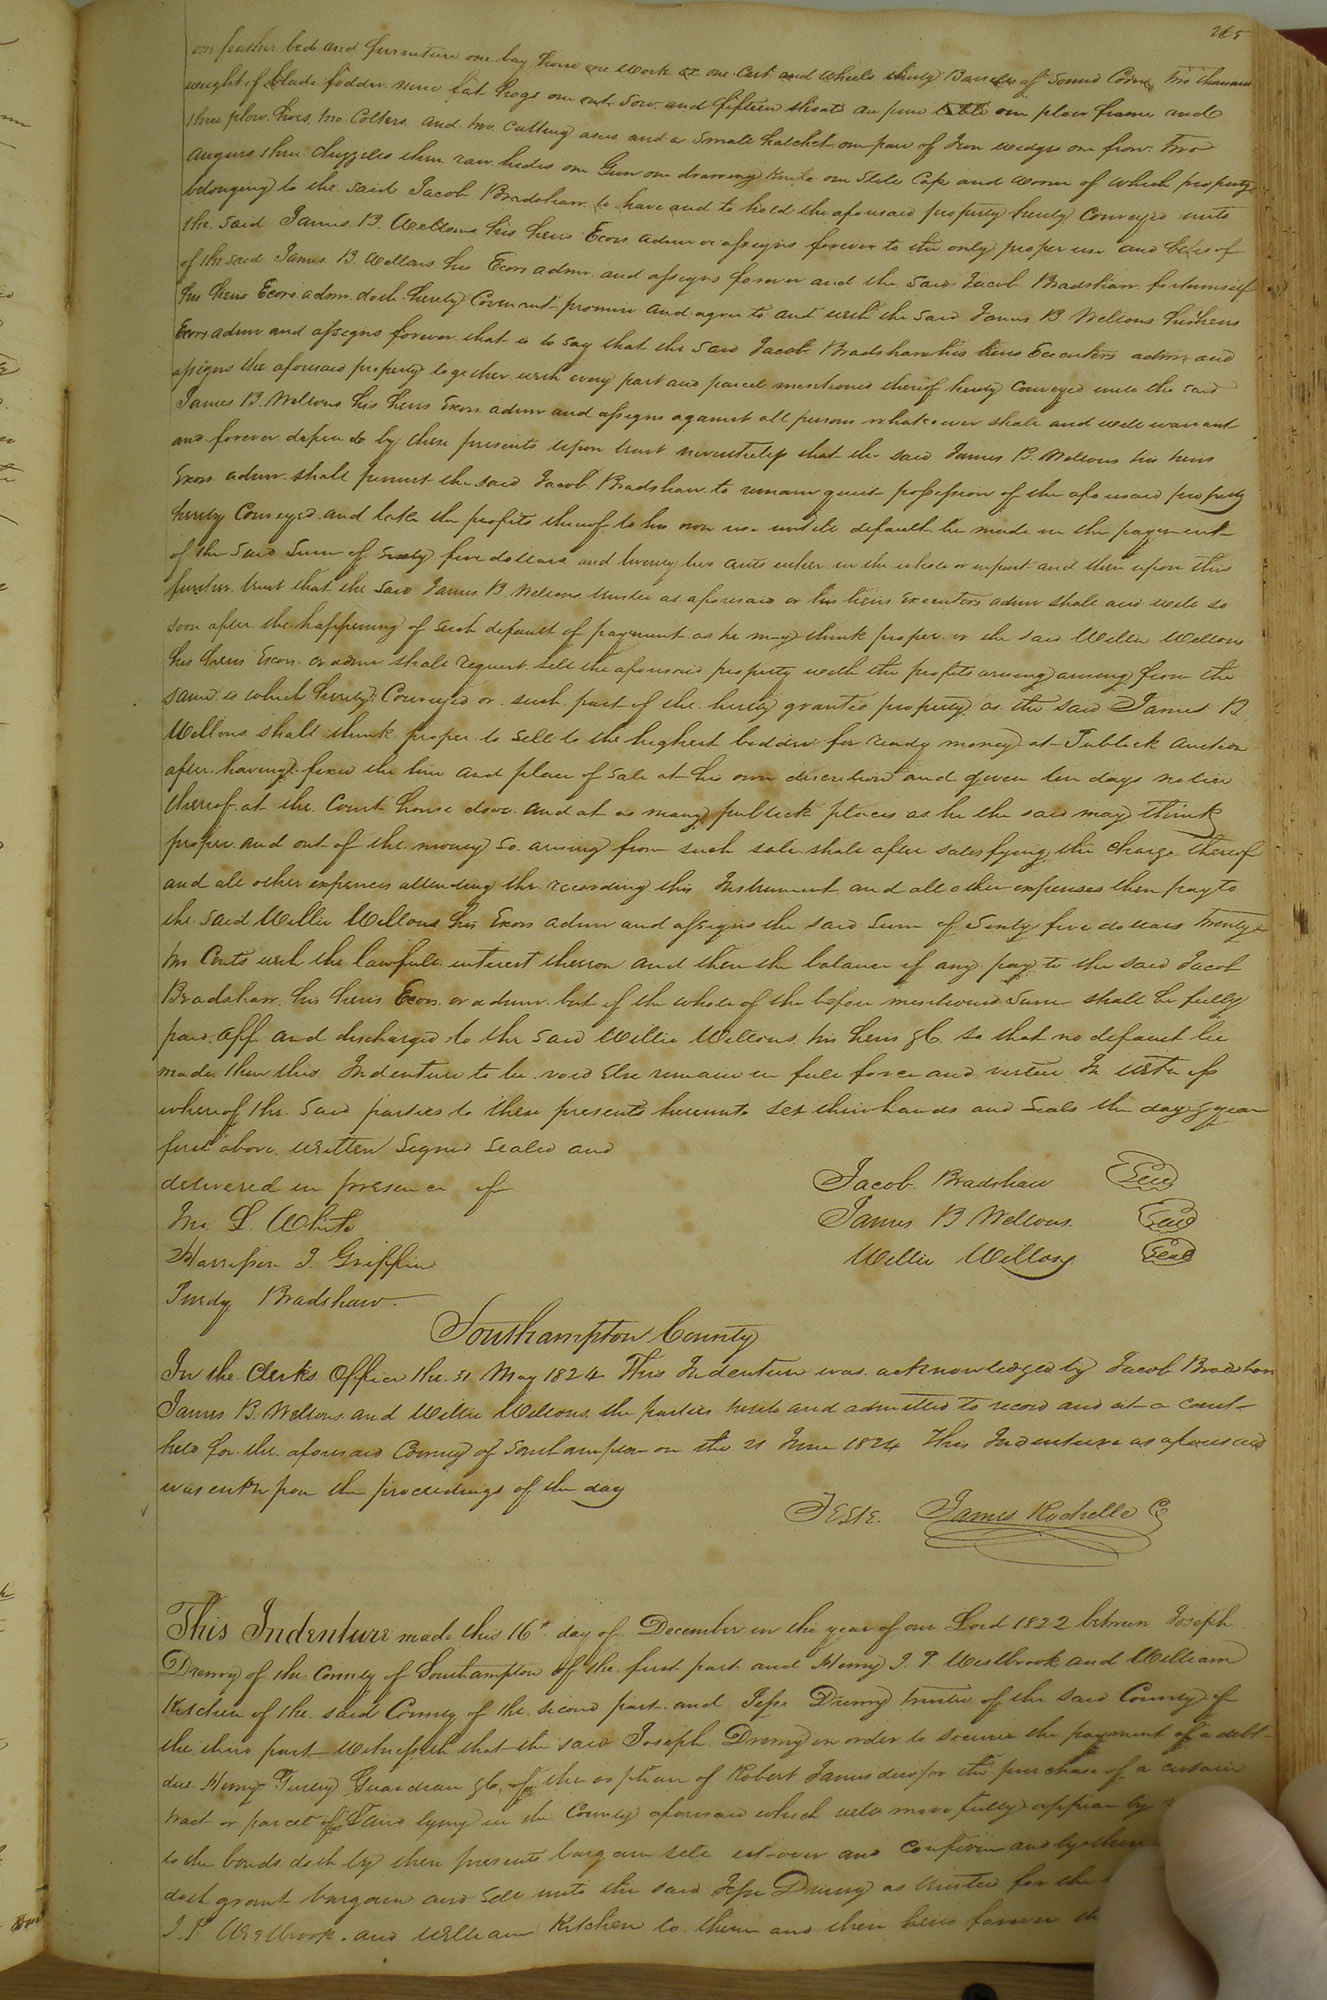 265
one feather bed and furniture one bay horse one work ox one cart and wheels thirty Barrells of Sound Corn two thousand
weight of blade fodder nine fat hogs one sow and fifteen shoats one plow frame and
three plow hoes two Colters and two cutting axes and a small hatchet one pair of Iron wedges one frow two
augurs three Chizziles three raw hides one Gun one drawing knife one Stele Cap and worm of which property
belonging to the said Jacob Bradshaw to have and to hold the aforesaid property hereby Conveyed unto
the said James B. Wellons his heirs Exors admr or assigns forever to the only proper use and behoof
of the said James B. Wellons his Exors admr. and assigns forever and the said Jacob Bradshaw for himself
his heirs Exors admr. doth hereby Covenant promise and agree to and with the said James B Wellons his heirs
Exors admr and assigns forever that is to say that the said Jacob Bradshaw his heirs Executors admr and
assigns the aforesaid property together with every part and parcel mentioned thereof hereby Conveyed unto the said
James B. Wellons his heirs Exors admr and assigns against all persons whatsoever shall and will warrant
and forever defend by these presents upon trust nevertheless that the said James B. Wellons his heirs
Exors admr. shall permit the said Jacob Bradshaw to remain quiet possession of the aforesaid property
hereby Conveyed and take the profits thereof to his own use untill default be made in the payment
of the said Sum of Sixty five dollars and twenty two cents either in the whole or in part and then upon this
further trust that the said James B. Wellons trustee as aforesaid or his heirs executors admr shall and will so
soon after the happening of such default of payment as he may think proper or the said Willie Wellons
his heirs Exors. or admr shall request sell the aforesaid property with the profits arising arising from the
same is which hereby Conveyed or such part of the hereby granted property as the said James B
Wellons shall think proper to sell to the highest bidder for ready money at Publick auction
after having fixed the time and place of sale at his own discretion and given ten days notice
thereof at the Court house door and at as many publick places as he the said may think
proper and out of the money so arising from such sale shall after satisfying the charge thereof
and all other expences attending the recording this Instrument and all other expenses then pay to
the said Willie Wellons his Exors admr and assigns the said Sum of Sixty five dollars twenty
two Cents with the lawfull interest thereon and then the balance if any pay to the said Jacob
Bradshaw his heirs Exors. or admr. but if the whole of the before mentioned Sum shall be fully
paid off and discharged to the said Willie Wellons his heirs &c. so that no default be
made then this Indenture to be void Else remain in full force and virtue In witness
whereof the said parties to these presents hereunto set their hands and seals the day & year
first above written Signed Sealed and
delivered in presence of
Jacob Bradshaw Seal
Jno. L. White
James B Wellons Seal
Harrison J Griffin
Willie Wellons Seal
Purdy Bradshaw
Southampton County
In the Clerks Office the 31 May 1824 This Indenture was acknowledged by Jacob Bradshaw
James B. Wellons and Willie Wellons the parties hereto and admitted to record and at a court
held for the aforesaid County of Southampton on the 21 June 1824 This Indenture as aforesaid
was enterd upon the proceedings of the day
Teste. James Rochelle C
This Indenture made this 16th day of December in the year of our Lord 1822 between Joseph
Drewry of the County of Southampton of the first part and Henry J. P Westbrook and William
Kitchen of the said County of the second part and Jesse Drewry trustee of the said County of
the third part Witnesseth that the said Joseph Drewry in order to secure the payment of a debt
due Henry Guardian &c. of the orphans of Robert James decd for the purchase of a certain
tract or parcel of Land lying in the County aforesaid which will more fully appear by
to the bonds doth by these presents bargain sell set over and confirm and by these
doth grant bargain and sell unto the said Jesse Drewry as trustee for the
J. P Westbrook. and William Kitchen to them and their heirs forever